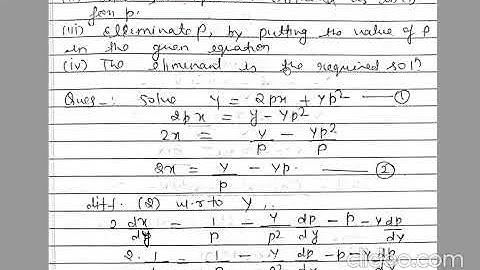 form p.
(iii) Elliminate P, by putting the value of P
in the given equation
(iv) The eliminant is the required solⁿ
Ques-: Solve y = 2px + yp² — ①
2px = y - yp²
2x = y/p - yp²/p
2x = y/p - yp. — ②
diff. (2) w.r to y,
2 dx/dy = 1/p - y/p² dp/dy - p - y dp/dy
2. 1/ = 1/ - y/p² dp/ - p - y dp/
clideo.com